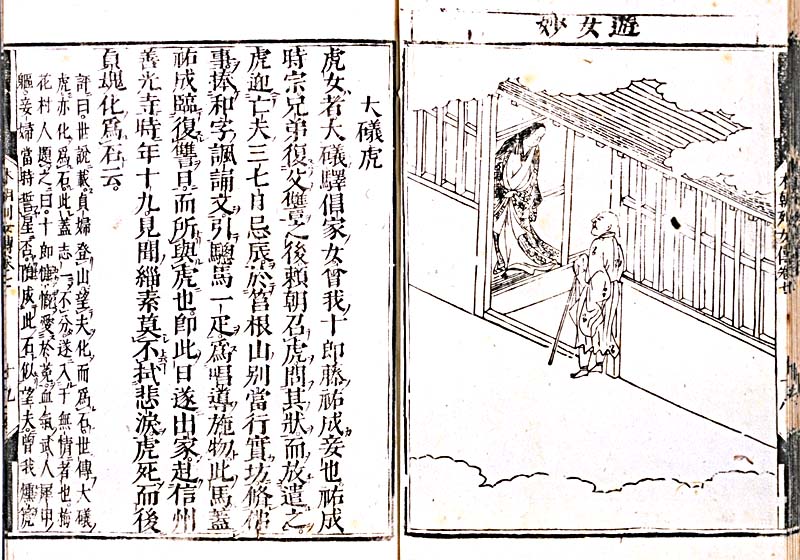 遊女妙
本朝列女傳卷七
大礒虎
虎女者大礒驛倡家女曾我十郎藤祐成妾也祐成
時宗兄弟復父讐之後賴朝召虎問其狀而放遣之
虎迎亡夫三七日忌辰於筥根山別當行實坊脩佛
事捧和字諷誦文引驄馬一疋爲唱導施物此馬蓋
祐成臨復讐日而所與虎也卽此日遂出家赴信州
善光寺時年十九見聞緇素莫不拭悲淚虎死而後
貞塊化爲石云
評曰世說載貞婦登山望夫化而爲石世傳大礒
虎亦化爲石此蓋志一不分遂入于無情者也梅
花村人題之曰十郎慷慨愛於菟血氣武人犀甲
軀妾婦當時誓星否隕成此石似望夫曾我 虎